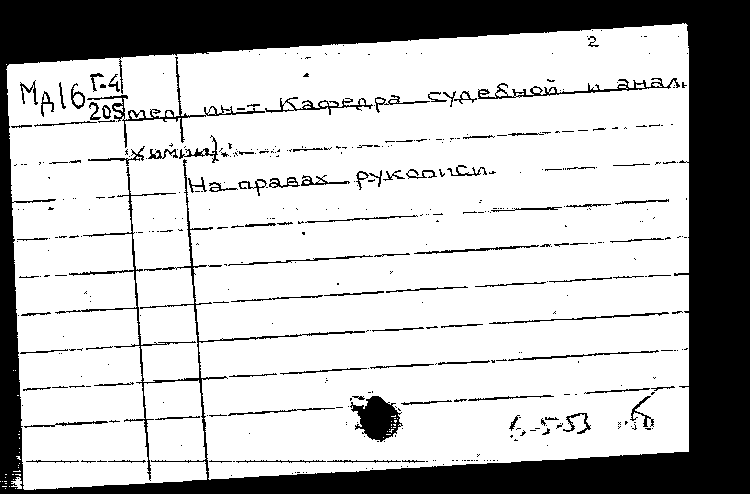 2
Мд16 Г-4/205
мед. ин-т. Кафедра судебной и анал.
химии).
На правах рукописи.
6-5-53